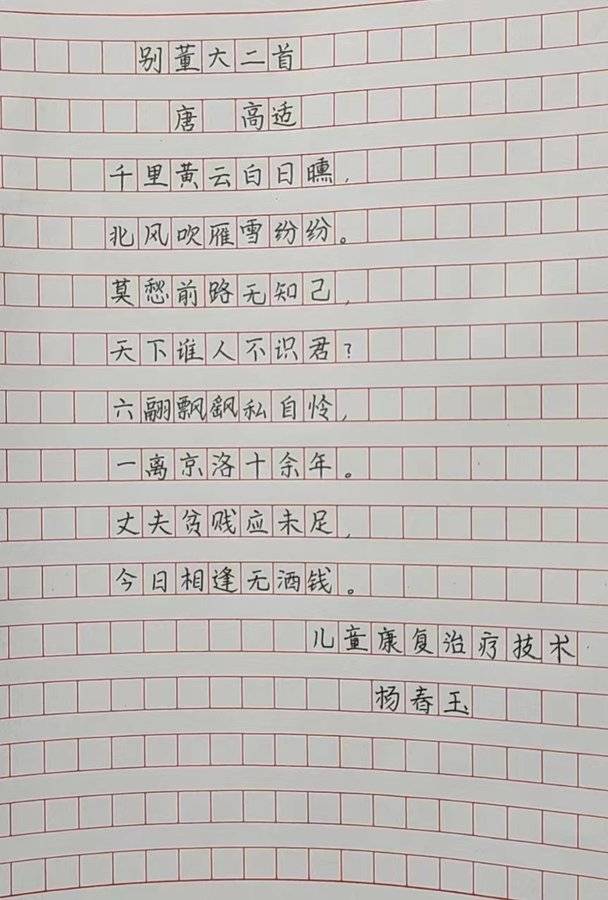 别董大二首
唐 高适
千里黄云白日曛,
北风吹雁雪纷纷。
莫愁前路无知己,
天下谁人不识君?
六翮飘飖私自怜,
一离京洛十余年。
丈夫贫贱应未足,
今日相逢无酒钱。
儿童康复治疗技术
杨春玉